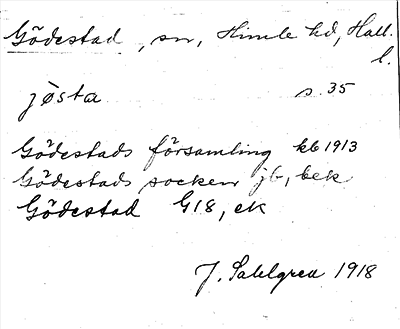 Gödestad, sn, Himle hd, Hall.
l.
jösta s. 35
Gödestads församling kb 1913
Gödestads socken jb, bek
Gödestad G18, ek
J. Sahlgren 1918